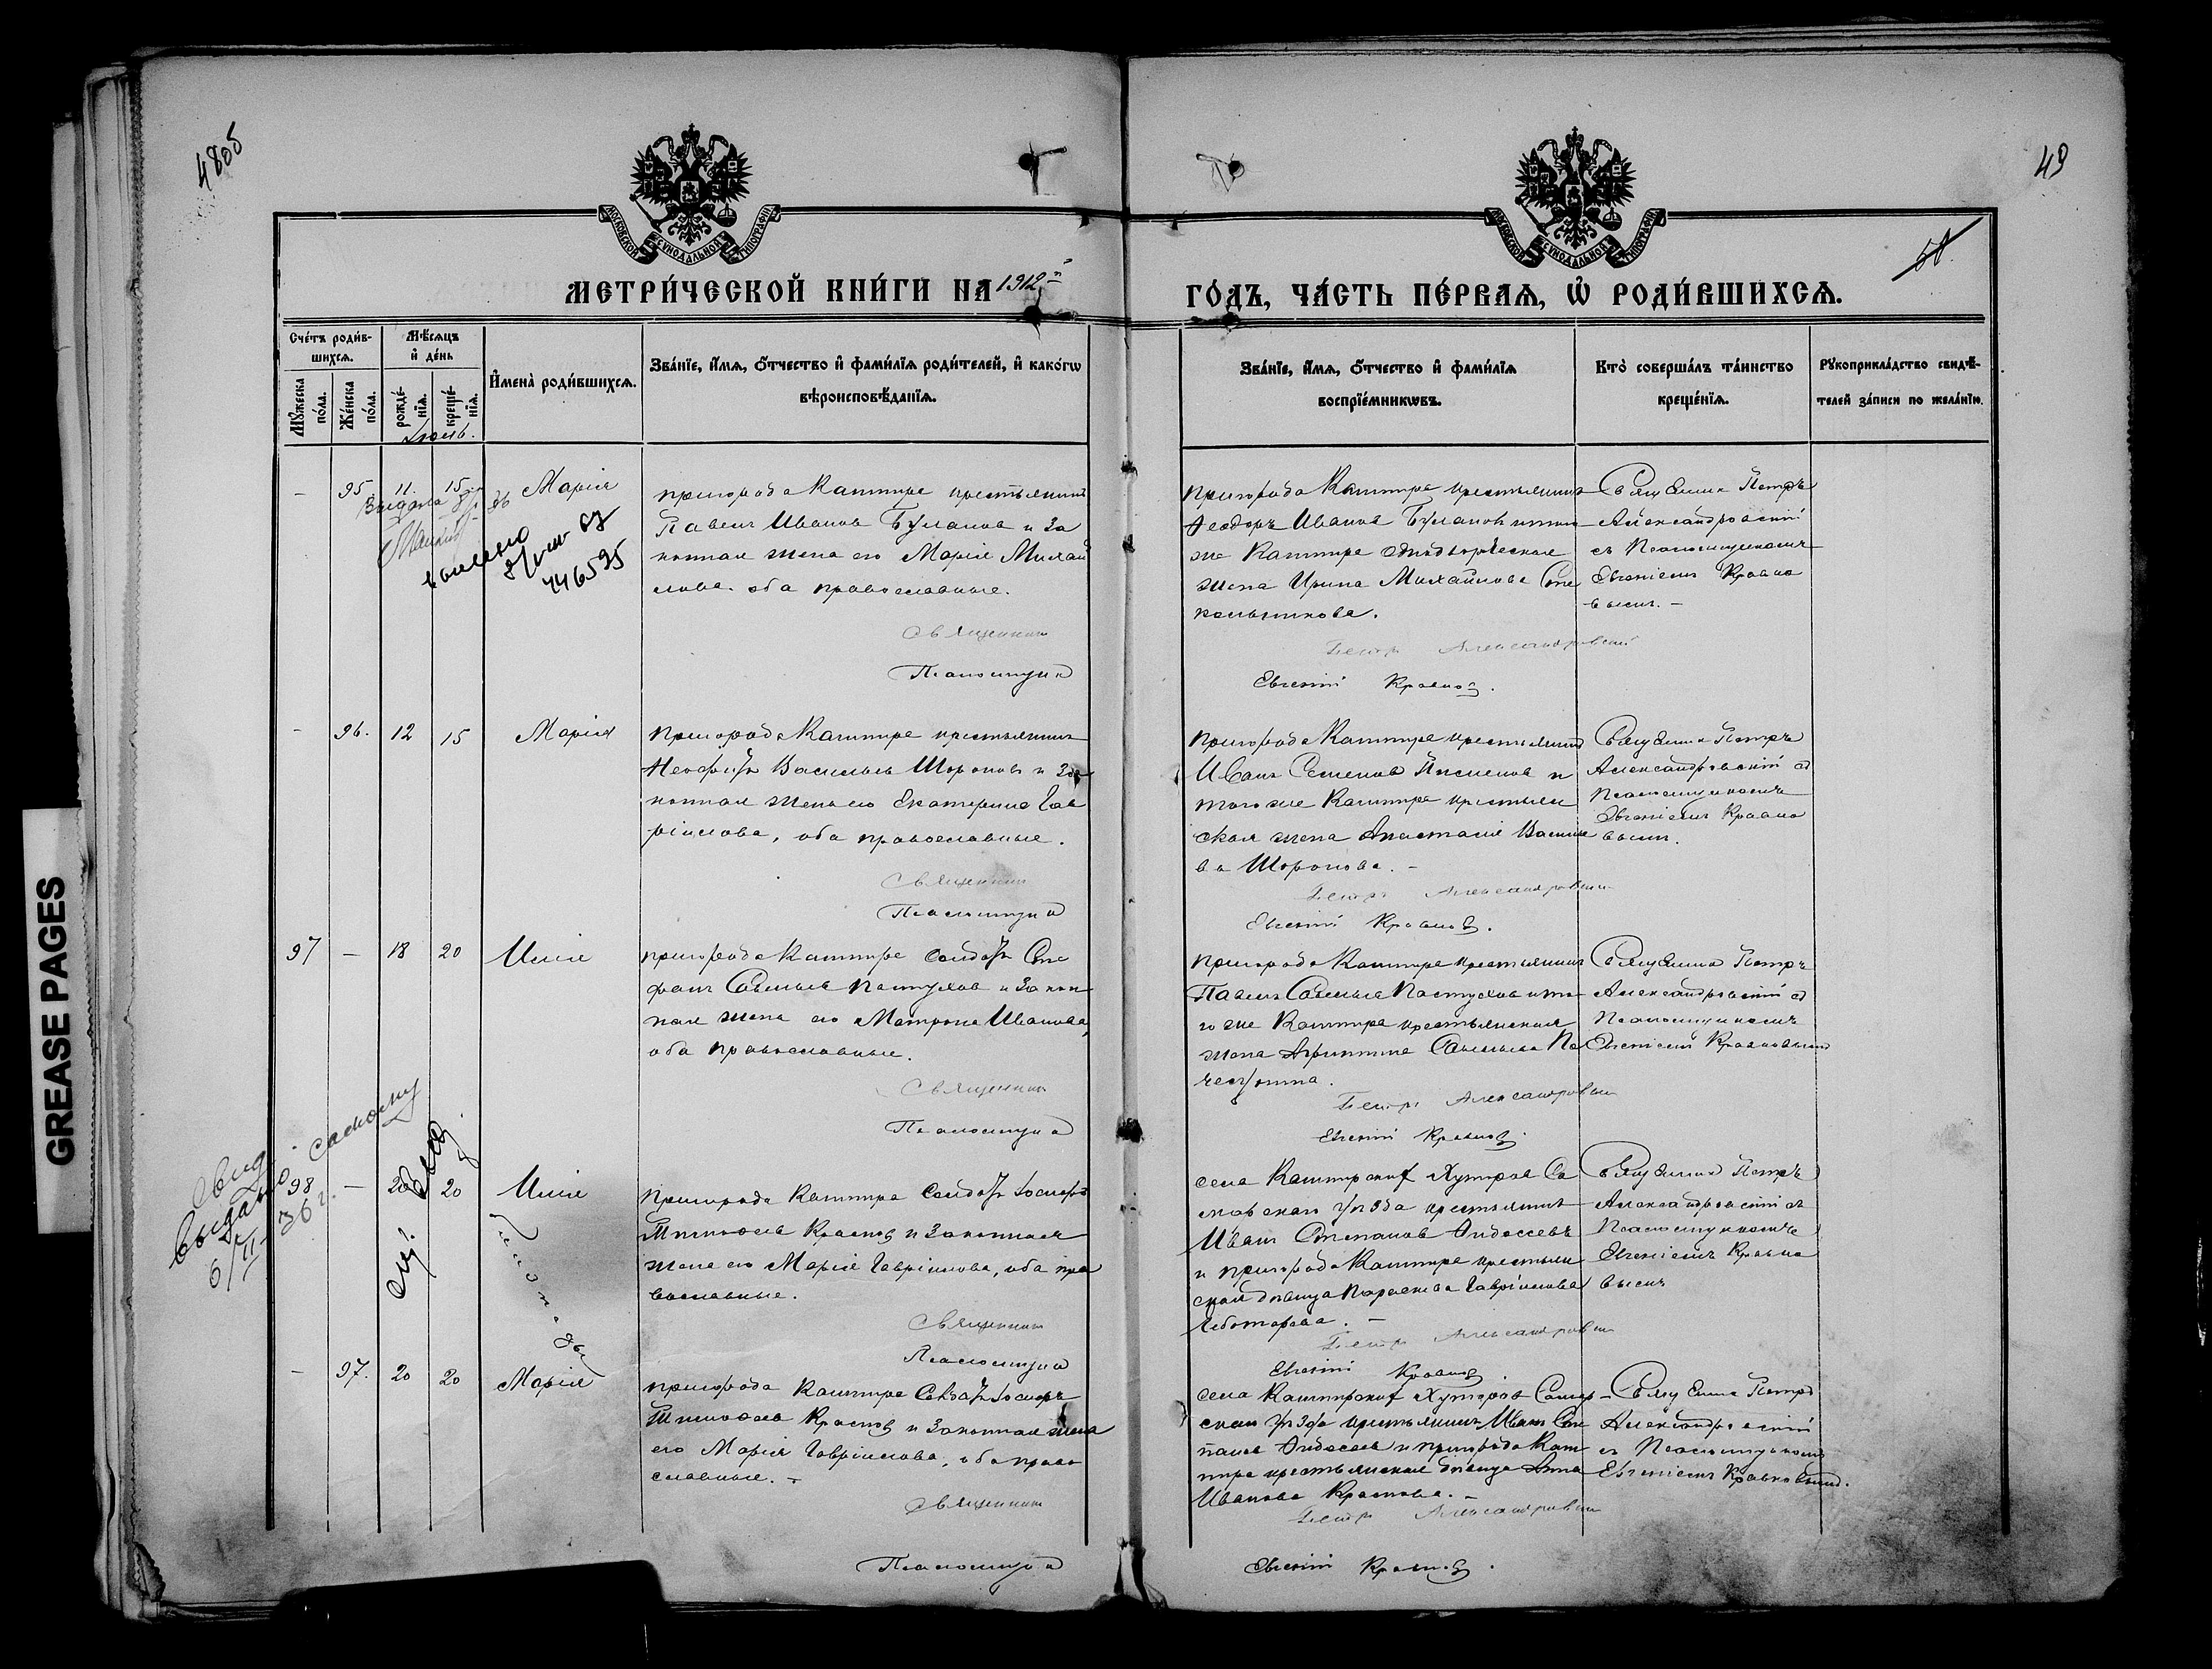 48об
49
МОСКОВСКОЙ СѴНОДАЛЬНОЙ ТИПОГРАФІИ
МОСКОВСКОЙ СѴНОДАЛЬНОЙ ТИПОГРАФІИ
МЕТРИ́ЧЕСКОЙ КНИ́ГИ НА 1912й
ГО́ДЪ, ЧА́СТЬ ПЕ́РВАѦ, Ѡ҆ РОДИ́ВШИХСѦ.
Сче́тъ роди́вшихсѧ.
Мꙋ́жеска по́ла.
Же́нска по́ла.
Мѣ́сѧцъ и҆ де́нь
рожде́нїѧ.
креще́нїѧ.
И҆мена̀ роди́вшихсѧ.
Зва́нїе, и҆́мѧ, ѻ҆́тчество и҆ фами́лїѧ роди́телей, и҆ како́гѡ
вѣроисповѣ́данїѧ.
Зва́нїе, и҆́мѧ, ѻ҆́тчество и҆ фами́лїѧ
воспрїе́мникѡвъ.
Кто̀ соверша́лъ та́инство
креще́нїѧ.
Рꙋкоприкла́дство свидѣ́-
телей за́писи по жела́нїю.
Іюль.
– 95 11. 15 Марія
446595
пригорода Каштире крестьянинъ
Павелъ Ивановъ Булановъ и за
конная жена его Марія Михай
лова. оба православные.
Священникъ
Псаломщикъ
пригорода Каштире крестьянинъ
Ѳеодоръ Ивановъ Булановъ и того
же Каштире однодворческая
жена Ирина Михайлова
Петръ Александровскій
Евгеній Крановъ.
Священникъ Петръ
Александровскій
съ Псаломщикомъ
Евгеніемъ Крано
вымъ. –
– 96. 12 15 Марія
пригорода Каштире крестьянинъ
Неофитъ Васильевъ Шороновъ и за
конная жена его Екатерина Гав
ріилова, оба православные.
Священникъ
Псаломщикъ
пригорода Каштире крестьянинъ
Иванъ Семеновъ и
того же Каштире крестьян
ская жена Анастасія Василье
ва Шоронова. –
Петръ Александровскій
Евгеній Крановъ.
Священникъ Петръ
Александровскій съ
Псаломщикомъ
Евгеніемъ Крано
вымъ.
97 – 18 20 Илія
пригорода Каштире солдатъ Сте
фанъ Савельевъ Пастуховъ и закон
ная жена его Матрона Иванова,
оба православные.
Священникъ
Псаломщикъ
пригорода Каштире крестьянинъ
Павелъ Савельевъ Пастуховъ и то
го же Каштире крестьянская
жена Савельева
Петръ Александровскій
Евгеній Крановъ.
Священникъ Петръ
Александровскій съ
Псаломщикомъ
Евгеніемъ Крановымъ
Свид. выдано самому
6/II – 36 г.
98 – 20 20 Илія
пригорода Каштире солдатъ Іосифъ
Краснов и законная
жена его Марія Гавріилова, оба пра
вославные.
Священникъ
Псаломщикъ
села Каштирских Хуторов Са
марскаго уѣзда крестьянинъ
Иванъ Степановъ
и пригорода Каштире крестьян
ская дѣвица Параскева Гавріилова
Чеботарева. –
Петръ Александровскій
Евгеній Крановъ.
Священникъ Петръ
Александровскій съ
Псаломщикомъ
Евгеніемъ Крано
вымъ
– 97. 20 20 Марія
пригорода Каштире солдатъ Іосифъ
Краснов и законная жена
его Марія Гавріилова, оба право
славные. –
Священникъ
Псаломщикъ
села Каштирских Хуторов Самар
скаго уѣзда крестьянинъ Иванъ Сте
панов и пригорода Каш
тире крестьянская дѣвица Анна
Иванова Краснова. –
Петръ Александровскій
Евгеній Крановъ.
Священникъ Петръ
Александровскій
съ Псаломщикомъ
Евгеніемъ Крановымъ.
GREASE PAGES